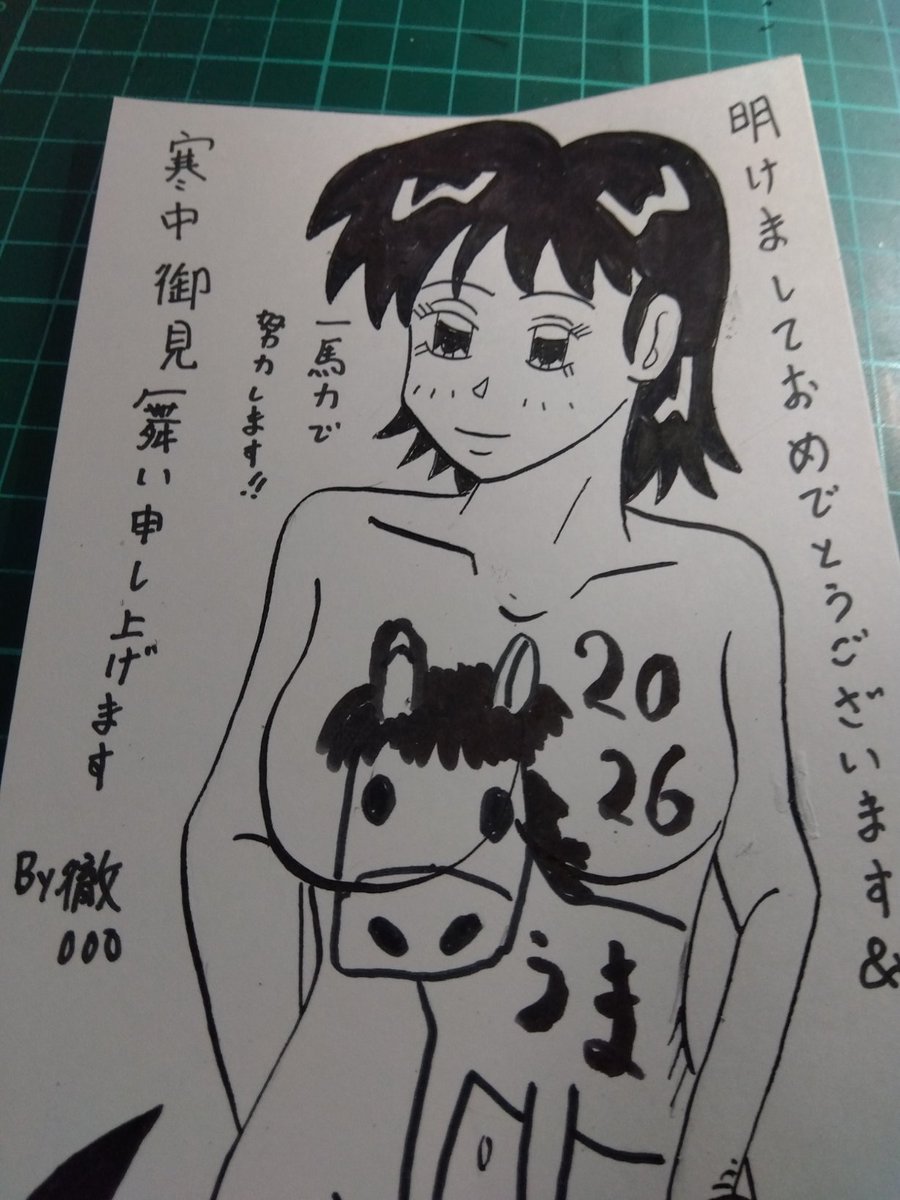 明けましておめでとうございます&
一馬力で
努力します!!
寒中御見舞い申し上げます
By徹
000
20
26
うま